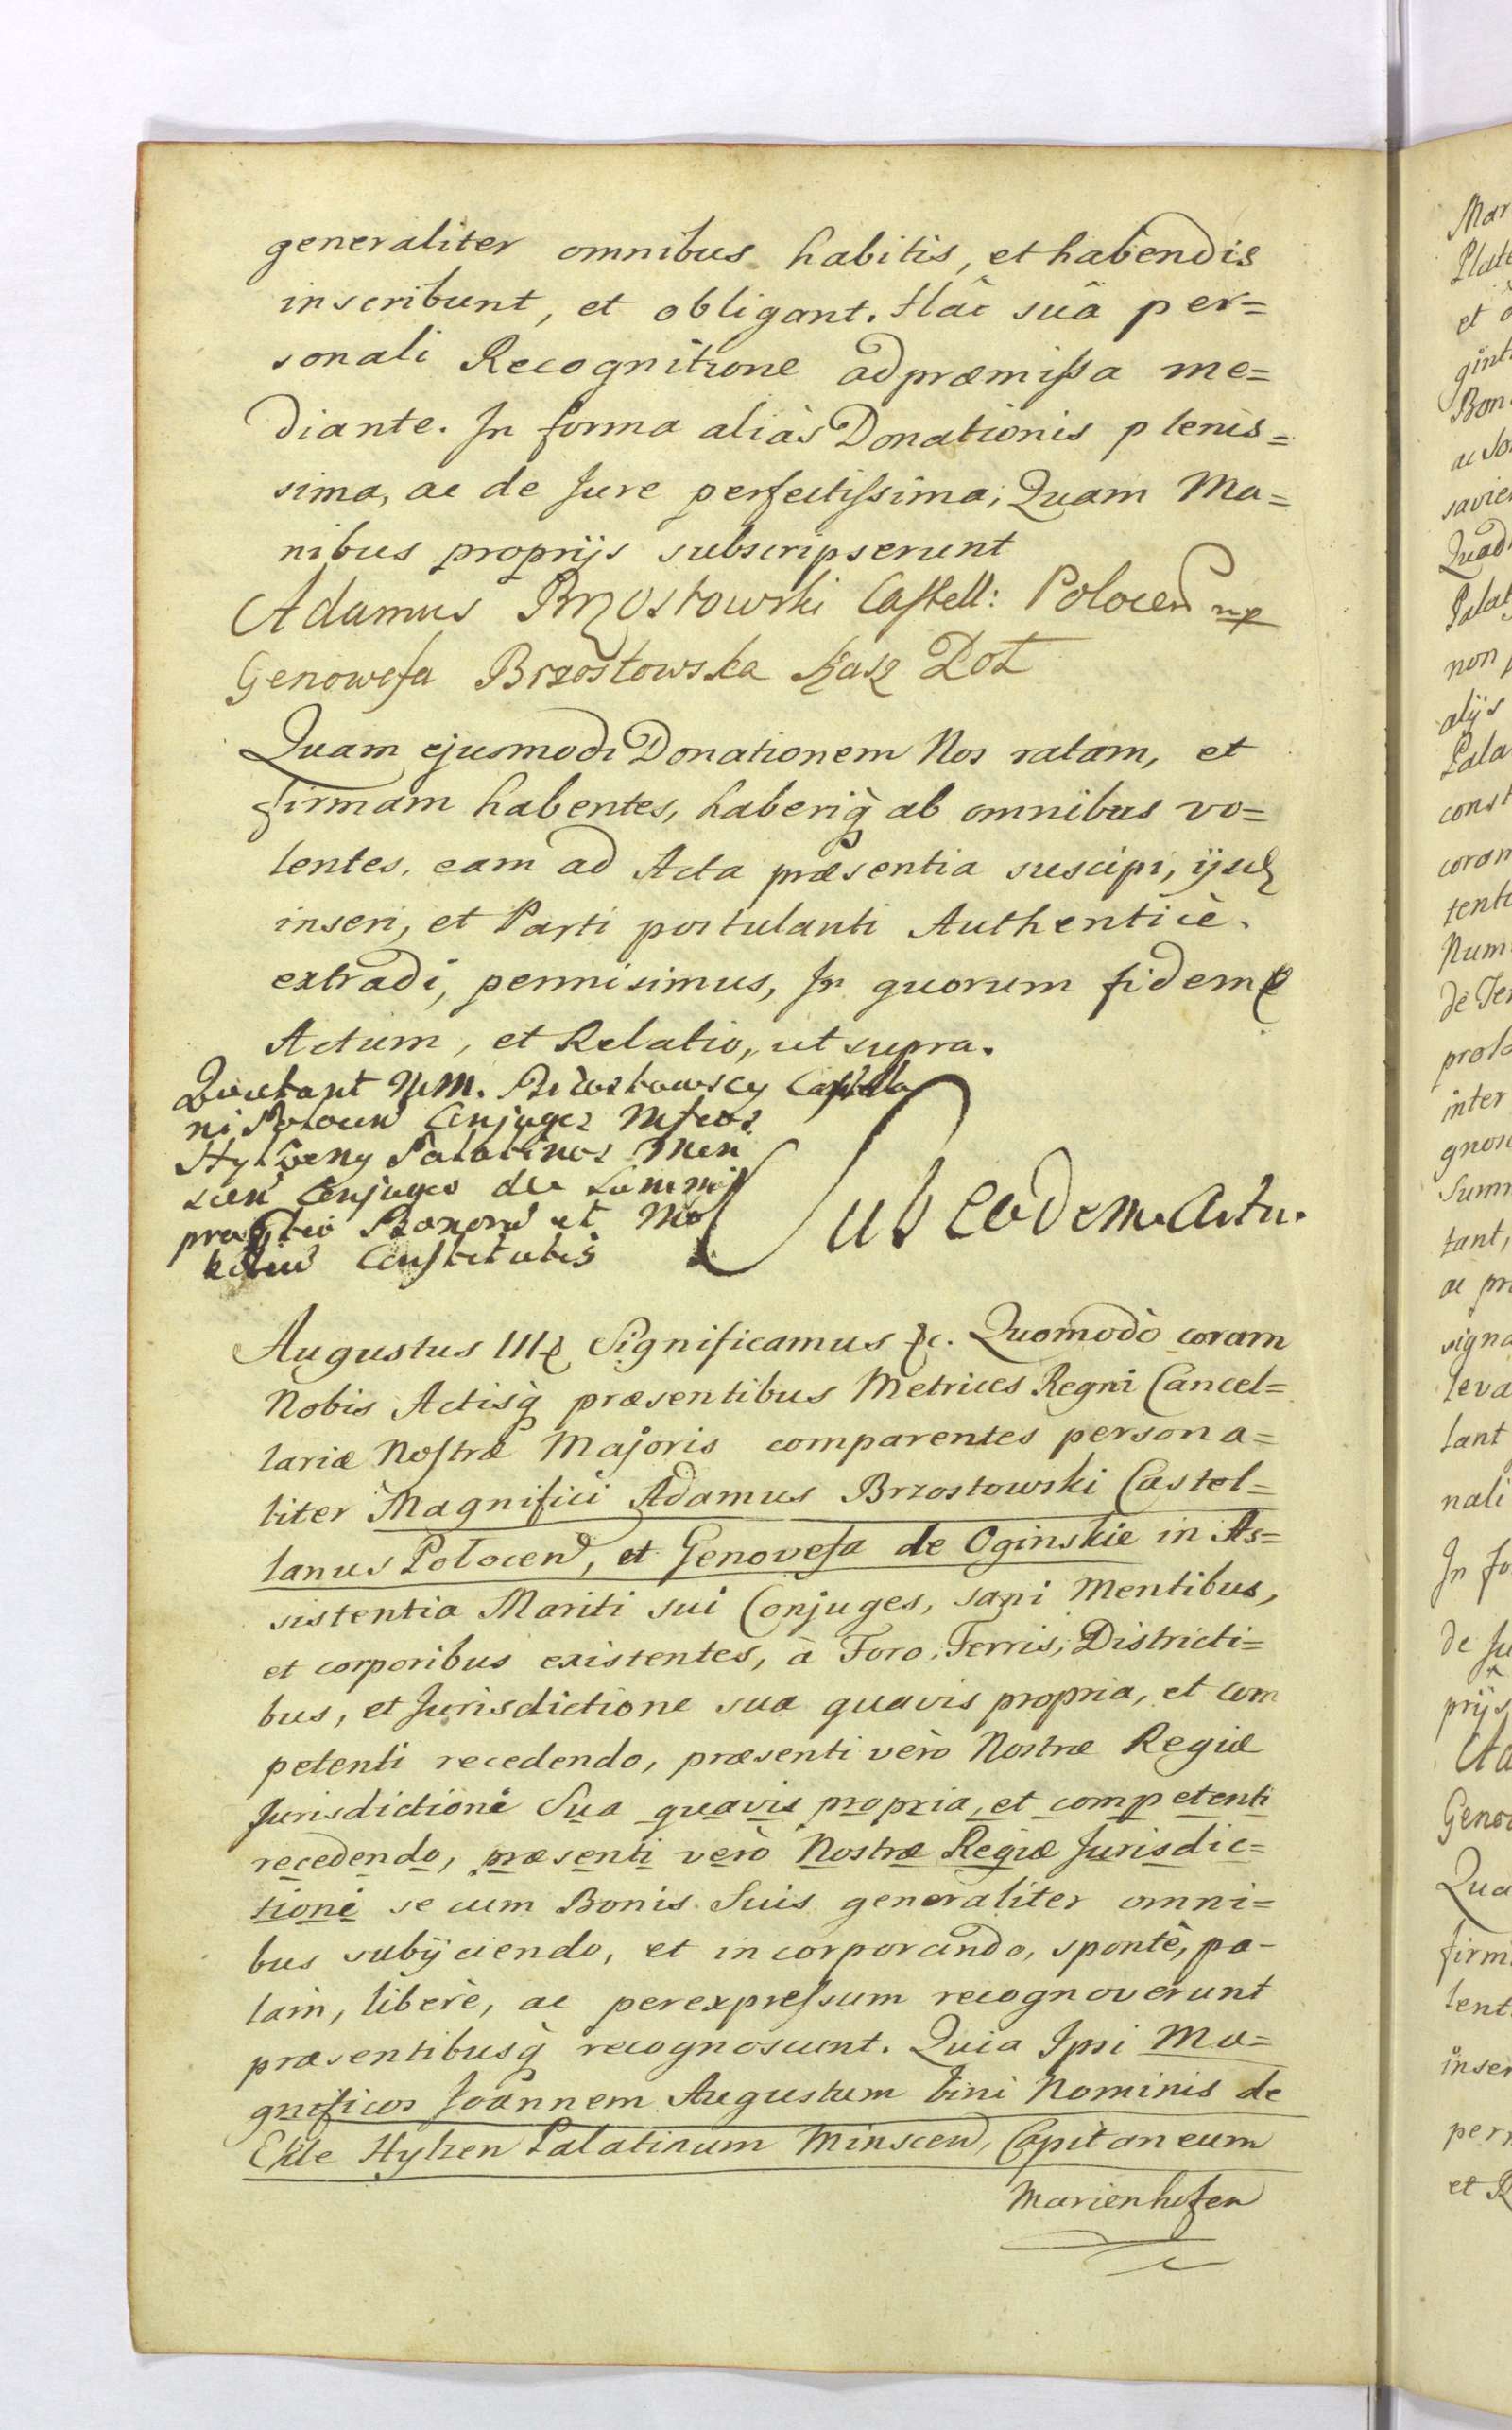 generaliter omnibus habitis, et habendis
inscribunt, et obligant. Hâc suâ per=
sonali Recognitione ad præmissa me=
diante. In forma aliàs Donationis plenis=
sima, ac de Jure perfectissima; Quam Ma=
nibus proprijs subscripserunt
Adamus Brzostowski Castell: Polocen mp
Genowefa Brzostowska Kasz Poł
Quam ejusmodi Donationem Nos ratam, et
firmam habentes, haberiq̀ ab omnibus vo=
lentes, eam ad Acta præsentia suscipi, ijsq
inseri, et Parti postulanti Authenticè
extradi, permisimus, In quorum fidem
Actum, et Relatio, ut supra.
Quietant MM. Brzostowscy Castella
ni Polocen Conjuges Mfcos
Hylzeny Palatinos Min
scen Conjuges de Summis
Bonorū et
Constitutis
Sub eodem Actu.
Augustus IIIę Significamus &c. Quomodò coram
Nobis Actisq̀ præsentibus Metrices Regni Cancel=
lariæ Nostræ Majoris comparentes persona=
liter Magnifici Adamus Brzostowski Castel=
lanus Polocen, et Genovefa de Oginskie in As=
sistentia Mariti sui Conjuges, sani Mentibus,
et corporibus existentes, à Foro, Terris, Districti=
bus, et Jurisdictione sua quavis propria, et com
petenti recedendo, præsenti verò Nostræ Regiæ
Jurisdictioni Sua quavis propria, et competenti
recedendo, præsenti verò Nostræ Regiæ Jurisdic=
tioni se cum Bonis Suis generaliter omni=
bus subijciendo, et incorporando, spontè, pa-
lam, liberè, ac per expressum recognoverunt
præsentibusq̀ recognoscunt. Quia Ipsi Ma=
gnificos Joannem Augustum bini Nominis de
Ekle Hylzen Palatinum Minscen, Capitaneum
Marienhofen